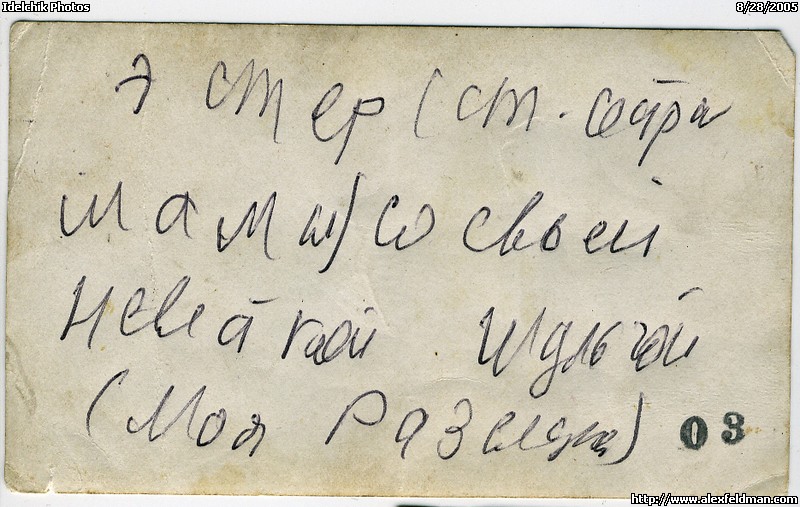 Idelchik Photos
8/28/2005
Эстер (ст. сестра
мамы) со своей
невесткой Шульгой
(Моя
03
http://www.alexfeldman.com